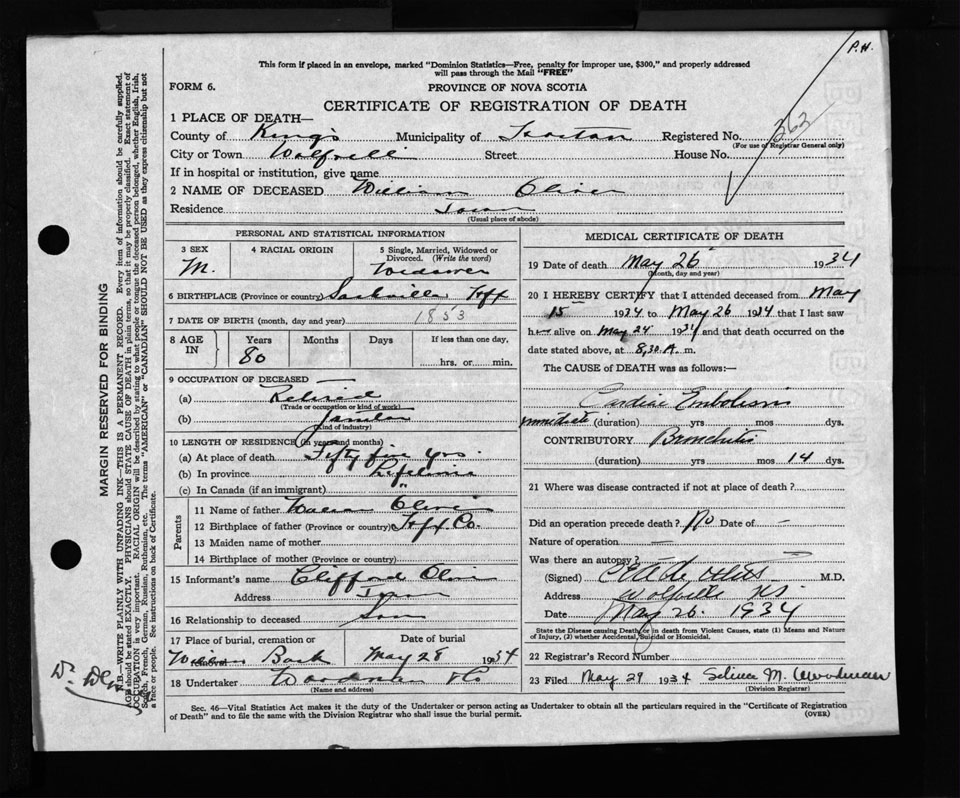 P.H.
This form if placed in an envelope, marked "Dominion Statistics—Free, penalty for improper use, $300," and properly addressed
will pass through the Mail "FREE"
FORM 6.
PROVINCE OF NOVA SCOTIA
CERTIFICATE OF REGISTRATION OF DEATH
1 PLACE OF DEATH—
County of Kings Municipality of Registered No. 363
(For use of Registrar General only)
City or Town Street House No.
If in hospital or institution, give name
2 NAME OF DECEASED William Oliver
Residence Town
(Usual place of abode)
PERSONAL AND STATISTICAL INFORMATION
3 SEX 4 RACIAL ORIGIN 5 Single, Married, Widowed or
Divorced. (Write the word)
M. Widower
6 BIRTHPLACE (Province or country) Sackville Hfx
7 DATE OF BIRTH (month, day and year) 1853
8 AGE IN Years Months Days If less than one day,
80 hrs. or min.
9 OCCUPATION OF DECEASED
(a) Retired
(Trade or occupation or kind of work)
(b)
(Kind of industry)
10 LENGTH OF RESIDENCE (in years and months)
(a) At place of death Fifty five yrs.
(b) In province Lifetime
(c) In Canada (if an immigrant) "
Parents
11 Name of father William Oliver
12 Birthplace of father (Province or country) Hfx Co.
13 Maiden name of mother
14 Birthplace of mother (Province or country)
15 Informant's name Clifford Oliver
Address Town
16 Relationship to deceased Son
17 Place of burial, cremation or removal Date of burial
Bank May 28 1934
18 Undertaker Woodman
(Name and address)
MEDICAL CERTIFICATE OF DEATH
19 Date of death May 26 1934
(Month, day and year)
20 I HEREBY CERTIFY that I attended deceased from May
15 1934 to May 26 1934 that I last saw
h alive on May 24 1934 and that death occurred on the
date stated above, at 8.30 A. m.
The CAUSE of DEATH was as follows:—
Cardiac Embolism
immediate (duration) yrs mos dys.
CONTRIBUTORY Bronchitis
(duration) yrs mos 14 dys.
21 Where was disease contracted if not at place of death?
Did an operation precede death? No Date of —
Nature of operation —
Was there an autopsy?
(Signed) M.D.
Address Wolfville NS
Date May 26. 1934
State the Disease causing Death, or in death from Violent Causes, state (1) Means and Nature
of Injury, (2) whether Accidental, Suicidal or Homicidal.
22 Registrar's Record Number
23 Filed May 29 1934 M. Woodman
(Division Registrar)
Sec. 46—Vital Statistics Act makes it the duty of the Undertaker or person acting as Undertaker to obtain all the particulars required in the "Certificate of Registration
of Death" and to file the same with the Division Registrar who shall issue the burial permit.
(OVER)
MARGIN RESERVED FOR BINDING
N.B.—WRITE PLAINLY WITH UNFADING INK—THIS IS A PERMANENT RECORD. Every item of information should be carefully supplied.
AGE should be stated EXACTLY. PHYSICIANS should STATE CAUSE OF DEATH in plain terms, so that it may be properly classified. Exact statement of
OCCUPATION is very important. RACIAL ORIGIN will be described by stating to what people or tongue the deceased person belonged, whether English, Irish,
Scotch, French, German, Russian, Ruthenian, etc. The terms "AMERICAN" or "CANADIAN" SHOULD NOT BE USED as they express citizenship but not
a race or people. See instructions on back of Certificate.